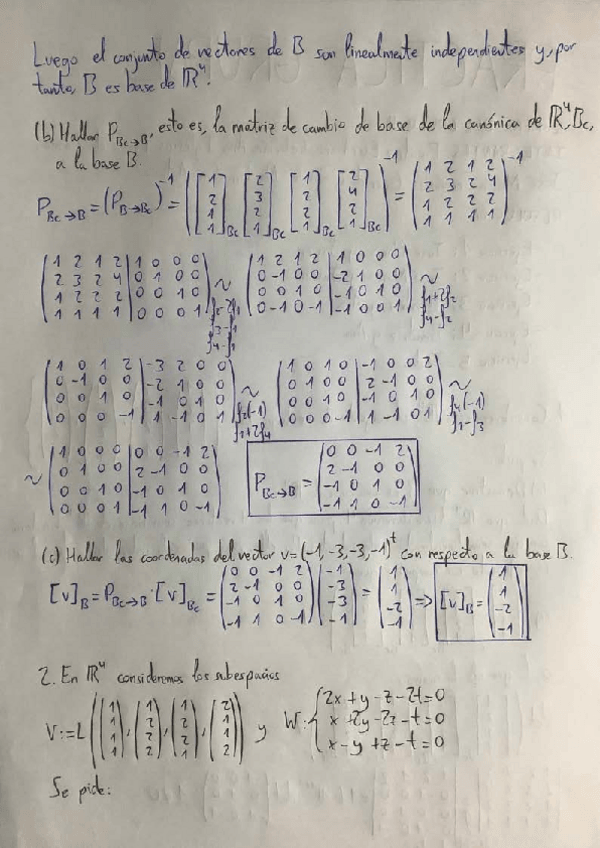 Luego el conjunto de vectores de B son linealmente independientes y, por
tanto, B es base de ℝ⁴.
(b) Hallar P_{Bc→B}, esto es, la matriz de cambio de base de la canónica de ℝ⁴, Bc,
a la base B.
P_{Bc→B} = (P_{B→Bc})^{-1} = ([1 2 1 1]_{Bc} [2 3 2 1]_{Bc} [1 2 2 1]_{Bc} [2 4 2 1]_{Bc})^{-1} = (1 2 1 2 / 2 3 2 4 / 1 2 2 2 / 1 1 1 1)^{-1}
(1 2 1 2 | 1 0 0 0 / 2 3 2 4 | 0 1 0 0 / 1 2 2 2 | 0 0 1 0 / 1 1 1 1 | 0 0 0 1) ~ f₂-2f₁ f₃-f₁ f₄-f₁ (1 2 1 2 | 1 0 0 0 / 0 -1 0 0 | -2 1 0 0 / 0 0 1 0 | -1 0 1 0 / 0 -1 0 -1 | -1 0 0 1) ~ f₁+2f₂ f₄-f₂
(1 0 1 2 | -3 2 0 0 / 0 -1 0 0 | -2 1 0 0 / 0 0 1 0 | -1 0 1 0 / 0 0 0 -1 | 1 -1 0 1) ~ f₂(-1) f₁+2f₄ (1 0 1 0 | -1 0 0 2 / 0 1 0 0 | 2 -1 0 0 / 0 0 1 0 | -1 0 1 0 / 0 0 0 -1 | 1 -1 0 1) ~ f₄(-1) f₁-f₃
~ (1 0 0 0 | 0 0 -1 2 / 0 1 0 0 | 2 -1 0 0 / 0 0 1 0 | -1 0 1 0 / 0 0 0 1 | -1 1 0 -1) P_{Bc→B} = (0 0 -1 2 / 2 -1 0 0 / -1 0 1 0 / -1 1 0 -1)
(c) Hallar las coordenadas del vector v=(-1,-3,-3,-1)^t con respecto a la base B.
[v]_B = P_{Bc→B} · [v]_{Bc} = (0 0 -1 2 / 2 -1 0 0 / -1 0 1 0 / -1 1 0 -1) (-1 / -3 / -3 / -1) = (1 / 1 / -2 / -1) ⇒ [v]_B = (1 / 1 / -2 / -1)
2. En ℝ⁴ consideremos los subespacios
V:=L((1 1 1 1), (1 2 2 2), (1 2 2 1), (2 1 1 2)) y W: {2x+y-z-2t=0 / x+2y-2z-t=0 / x-y+z-t=0
Se pide: